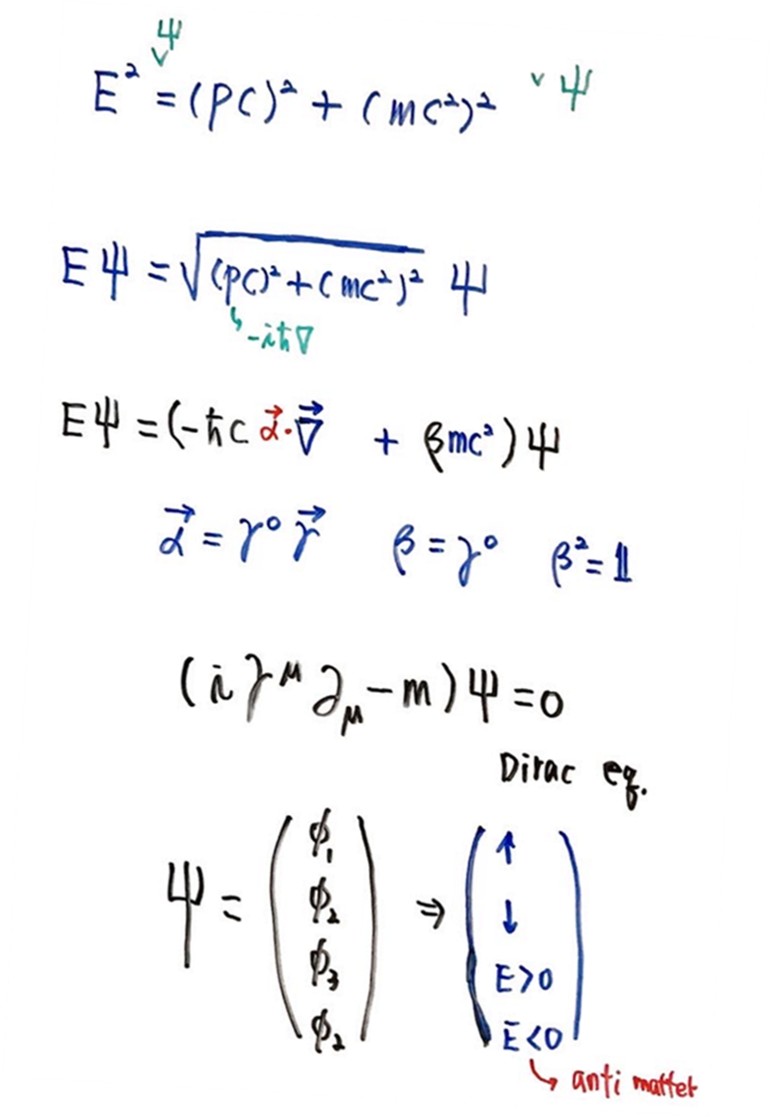 Ψ
E² = (PC)² + (mc²)² ˅ Ψ
EΨ = √((PC)² + (mc²)²) Ψ
↳ -iħ∇
EΨ = (-ħc α⃗·∇⃗ + βmc²)Ψ
α⃗ = γ⁰ γ⃗ β = γ⁰ β² = 𝟙
(iγ^μ ∂_μ - m)Ψ = 0
Dirac eq.
Ψ = (ϕ₁ ϕ₂ ϕ₃ ϕ₂) ⇒ (↑ ↓ E>0 E<0)
↳ anti matter